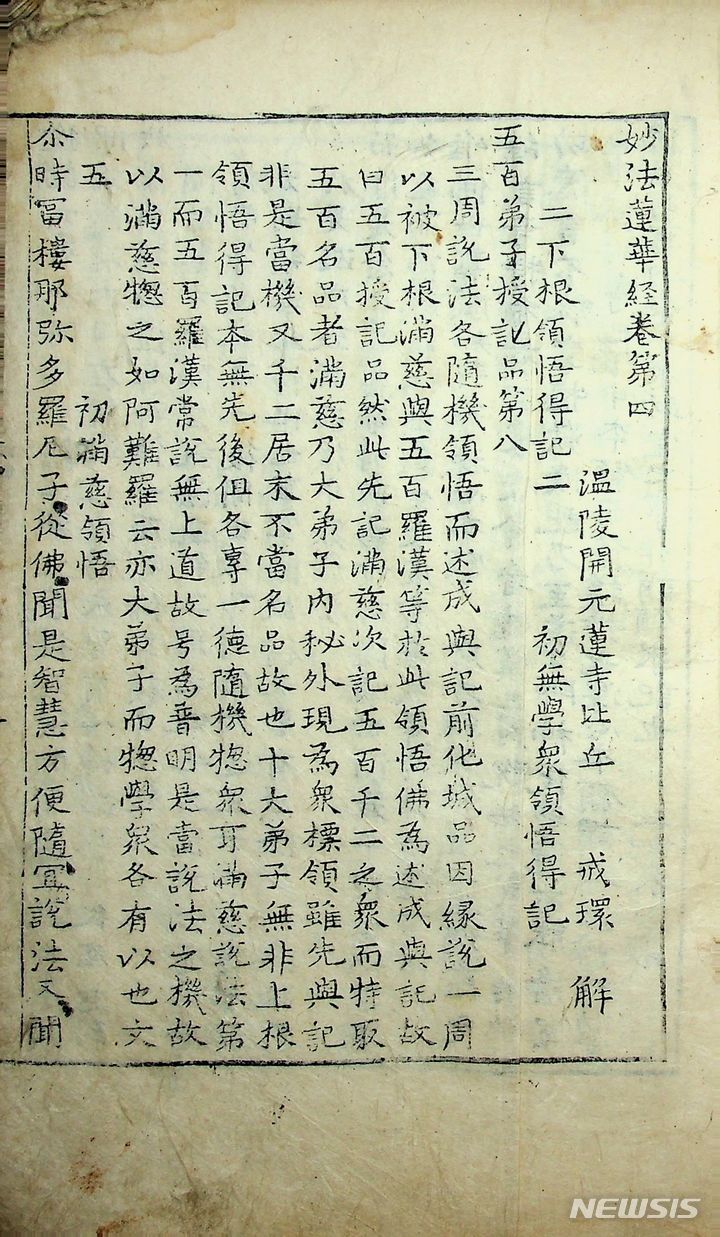 妙法蓮華経卷第四
温陵開元蓮寺比丘 戒環 解
二下根領悟得記二 初無學衆領悟得記
五百弟子授記品第八
三周說法各隨機領悟而述成與記前化城品因縁說一周
以被下根滿慈與五百羅漢等於此領悟佛為述成與記故
曰五百授記品然此先記滿慈次記五百千二之衆而特取
五百名品者滿慈乃大弟子內秘外現為衆標領雖先與記
非是當機又千二居末不當名品故也十大弟子無非上根
領悟得記本無先後但各專一德隨機惣衆耳滿慈說法第
一而五百羅漢常說無上道故号為普明是當說法之機故
以滿慈惣之如阿難羅云亦大弟子而惣學衆各有以也文
五 初滿慈領悟
尒時富樓那弥多羅尼子從佛聞是智慧方便隨冝說法又聞
NEWSIS